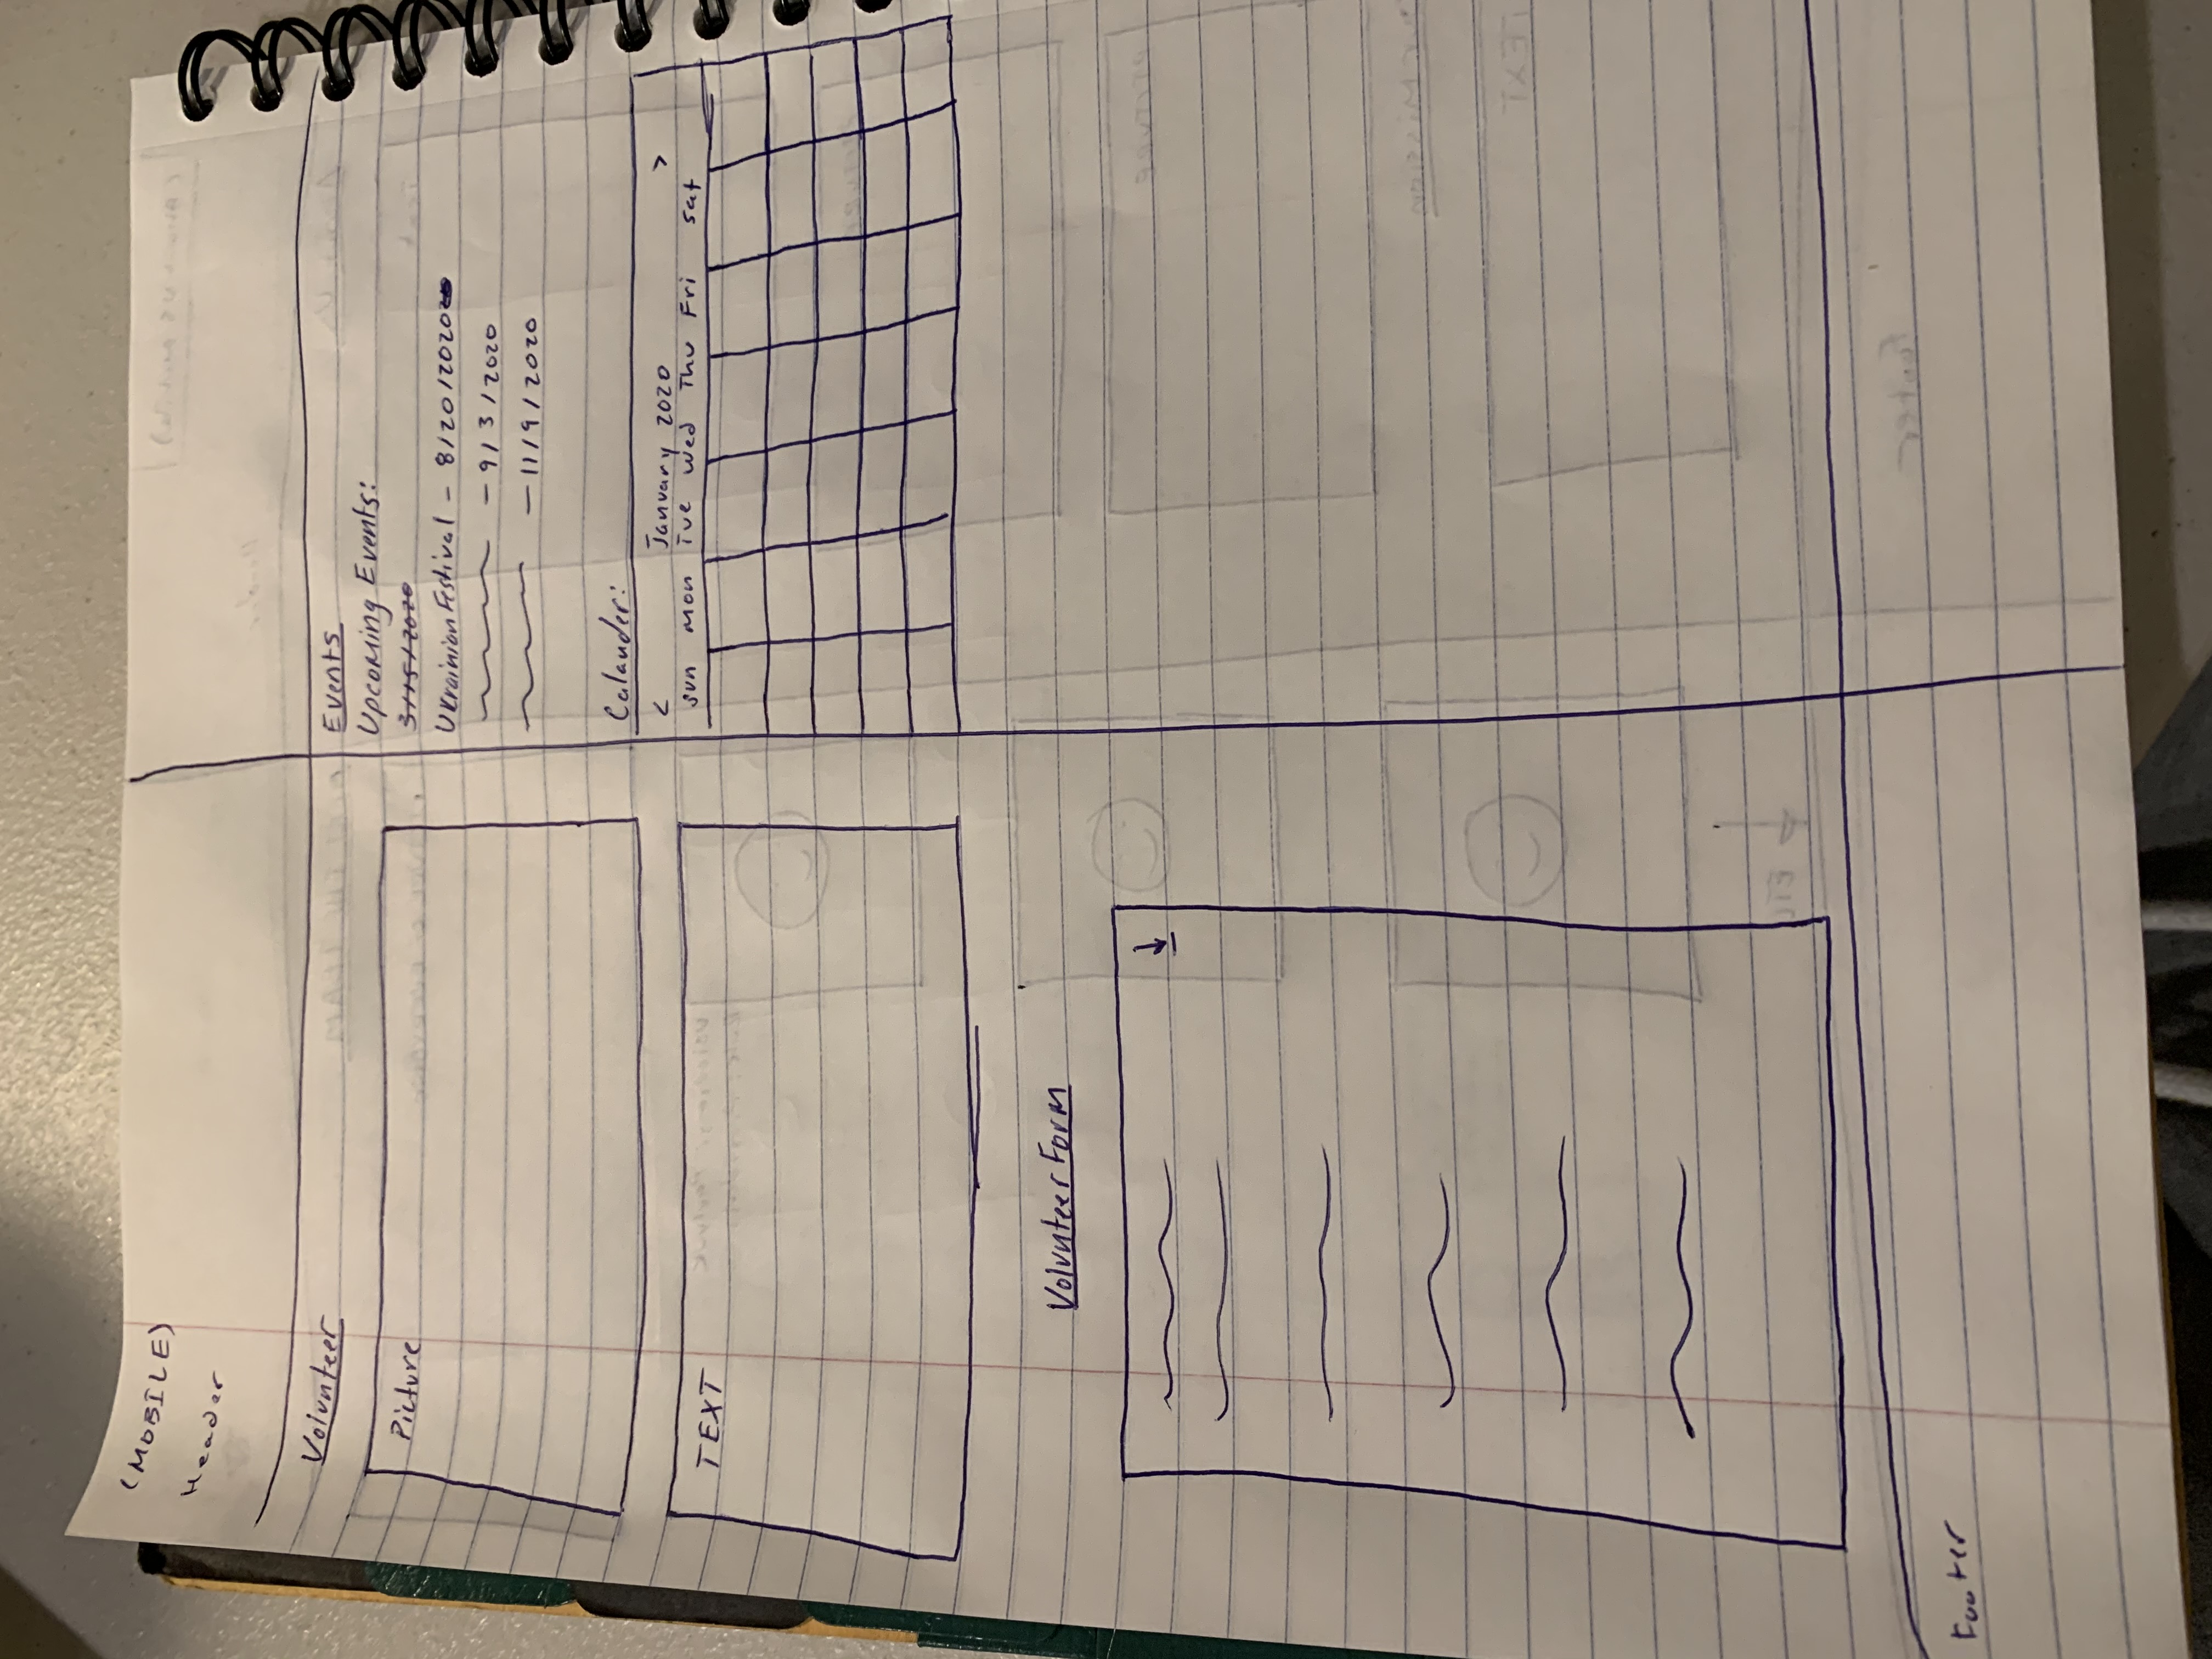 (MOBILE)
Header
Volunteer
Picture
TEXT
Volunteer Form
Footer
Events
Upcoming Events:
3/15/2020
Ukrainion Festival - 8/20/2020
- 9/3/2020
- 11/9/2020
Calander:
< January 2020 >
Sun Mon Tue Wed Thu Fri Sat